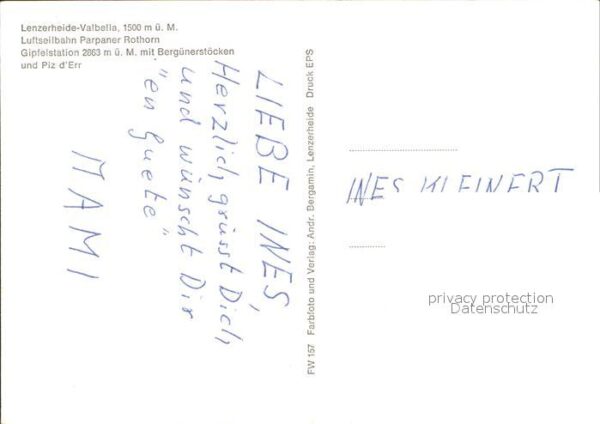 Lenzerheide-Valbella, 1500 m ü. M.
Luftseilbahn Parpaner Rothorn
Gipfelstation 2863 m ü. M. mit Bergünerstöcken
und Piz d'Err
LIEBE INES,
Herzlich grüsst Dich,
und wünscht Dir
"en Guete"
MAMI
FW 157 Farbfoto und Verlag: Andr. Bergamin, Lenzerheide Druck EPS
INES KLEINERT
privacy protection
Datenschutz